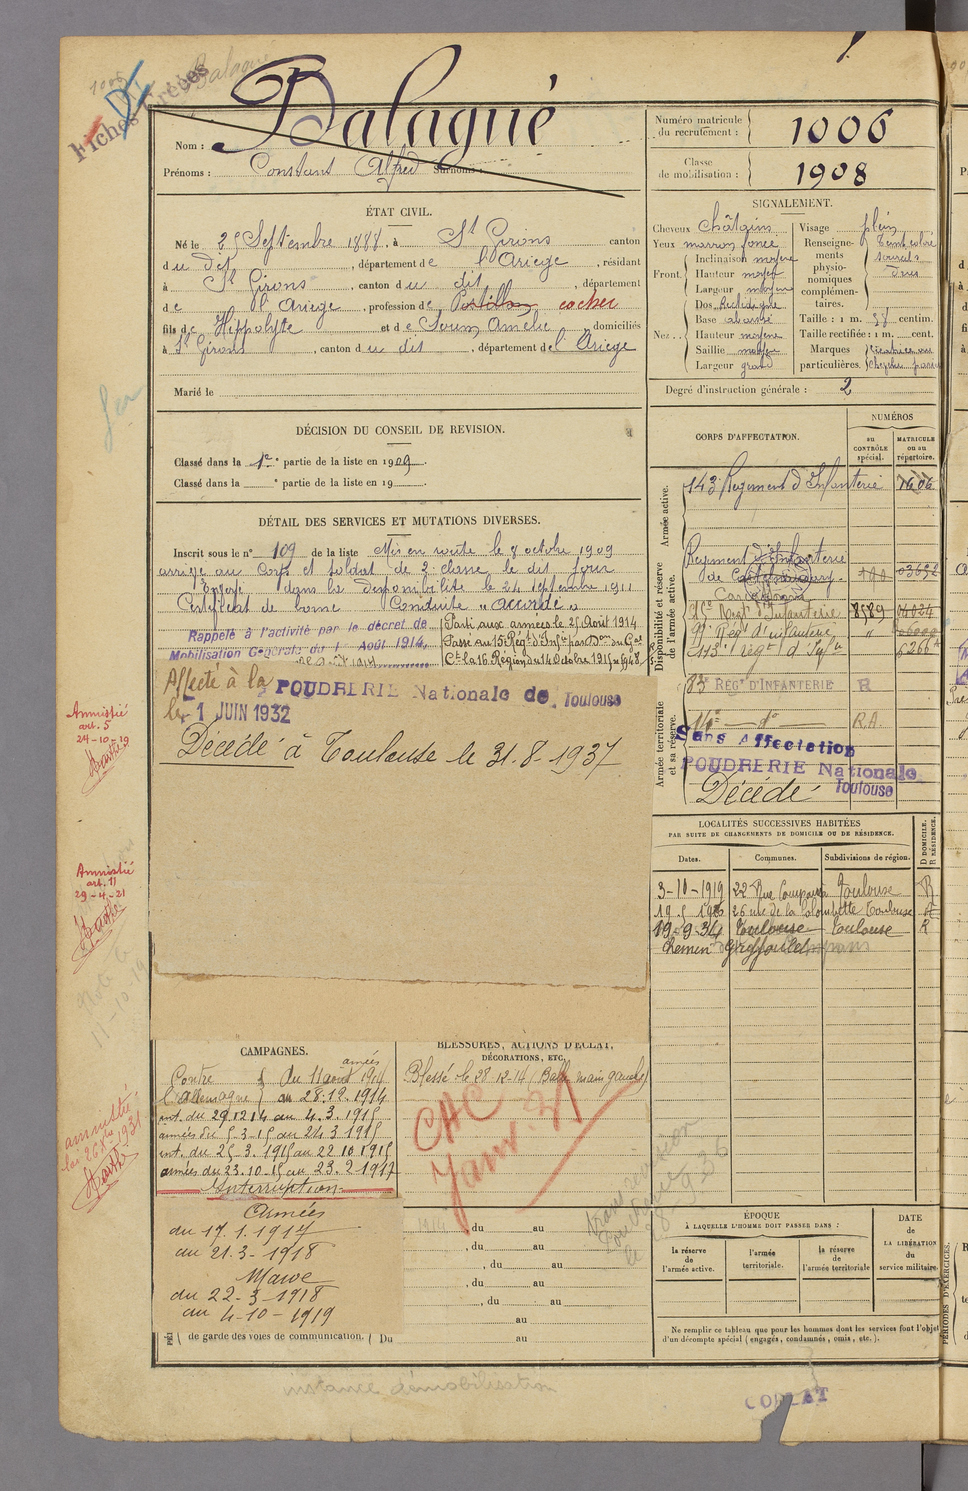 1006 Balagué
Fiches Créées
Balagué
Nom :
Prénoms : Constant Alfred Surnoms :
Numéro matricule
du recrutement : 1006
Classe
de mobilisation : 1908
ÉTAT CIVIL.
Né le 25 Septembre 1888, à St Girons canton
du dit, département de l'Ariège, résidant
à St Girons, canton du dit, département
de l'Ariège, profession de Postillon cocher
fils de Hippolyte et de Soum Amélie, domiciliés
à St Girons, canton du dit, département de l'Ariège
Marié le
SIGNALEMENT.
Cheveux châtains
Yeux marron foncé
Front. Inclinaison moyenne
Hauteur moyen
Largeur moyenne
Nez. Dos Rectiligne
Base abaissé
Hauteur moyenne
Saillie moyen
Largeur grand
Visage plein
Renseignements physionomiques complémentaires. Teint coloré
sourcils
Taille : 1 m. 58 centim.
Taille rectifiée : 1 m. cent.
Marques particulières.
Degré d'instruction générale : 2
DÉCISION DU CONSEIL DE REVISION.
Classé dans la 1re partie de la liste en 1909.
Classé dans la ° partie de la liste en 19
CORPS D'AFFECTATION.
NUMÉROS
au
CONTRÔLE
spécial.
MATRICULE
ou au
répertoire.
Armée active.
143e Régiment d'Infanterie 1406
Disponibilité et réserve
de l'armée active.
Régiment d'Infanterie
de Castelnaudary 03652
Carcassonne
Régt d'Infanterie 8589
Régt d'infanterie "
113e régt d'Infie
Armée territoriale
et sa réserve.
83e RÉGT D'INFANTERIE R
14e — do — R.A.
Sans Affectation
POUDRERIE Nationale
Toulouse
Décédé
DÉTAIL DES SERVICES ET MUTATIONS DIVERSES.
Inscrit sous le n° 109 de la liste Mis en route le 8 octobre 1909
arrivé au Corps et soldat de 2e classe le dit jour
Envoyé dans la disponibilité le 24 septembre 1911
Certificat de bonne Conduite "accordé"
Rappelé à l'activité par le décret de
Mobilisation Générale du 1er Août 1914,
Parti aux armées le 25 Août 1914
Passé au 15e Régt d'Infie par Don du Gal
Ct la 16e Région du 14 Octobre 1915
Affecté à la POUDRERIE Nationale de Toulouse
le 1 JUIN 1932
Décédé à Toulouse le 31-8-1937
Amnistié
art. 5
24-10-19
Amnistié
art. 11
29-4-21
amnistié
loi 26 Xbre 1931
LOCALITÉS SUCCESSIVES HABITÉES
PAR SUITE DE CHANGEMENTS DE DOMICILE OU DE RÉSIDENCE.
Dates.
Communes.
Subdivisions de région.
D DOMICILE.
R RÉSIDENCE.
3-10-1919 22 Rue Toulouse R
26 rue de la Colombette Toulouse R
19-9-34 Toulouse Toulouse R
Chemin
CAMPAGNES.
Contre
l'allemagne
armées
du 11 août 1914
au 28.12.1914
int. du 29.12.14 au 4.3.1915
armées du 5-3-15 au 24 3 1915
int. du 25-3-1915 au 22 10 1915
armées du 23-10-15 au 23-2-1917
Interruption
Armées
du 17.1.1917
au 21-3-1918
Maroc
du 22-3-1918
au 4-10-1919
BLESSURES, ACTIONS D'ÉCLAT,
DÉCORATIONS, ETC.
Blessé le 28-12-14 (Balle main gauche)
CAC
Janv. 31
, du au
, du au
, du au
, du au
, du au
au
de garde des voies de communication. Du au
ÉPOQUE
À LAQUELLE L'HOMME DOIT PASSER DANS :
la réserve
de
l'armée active.
l'armée
territoriale.
la réserve
de
l'armée territoriale
DATE
de
LA LIBÉRATION
du
service militaire.
Ne remplir ce tableau que pour les hommes dont les services font l'objet
d'un décompte spécial (engagés, condamnés, omis, etc.).
PÉRIODES D'EXERCICES.
instance démobilisation